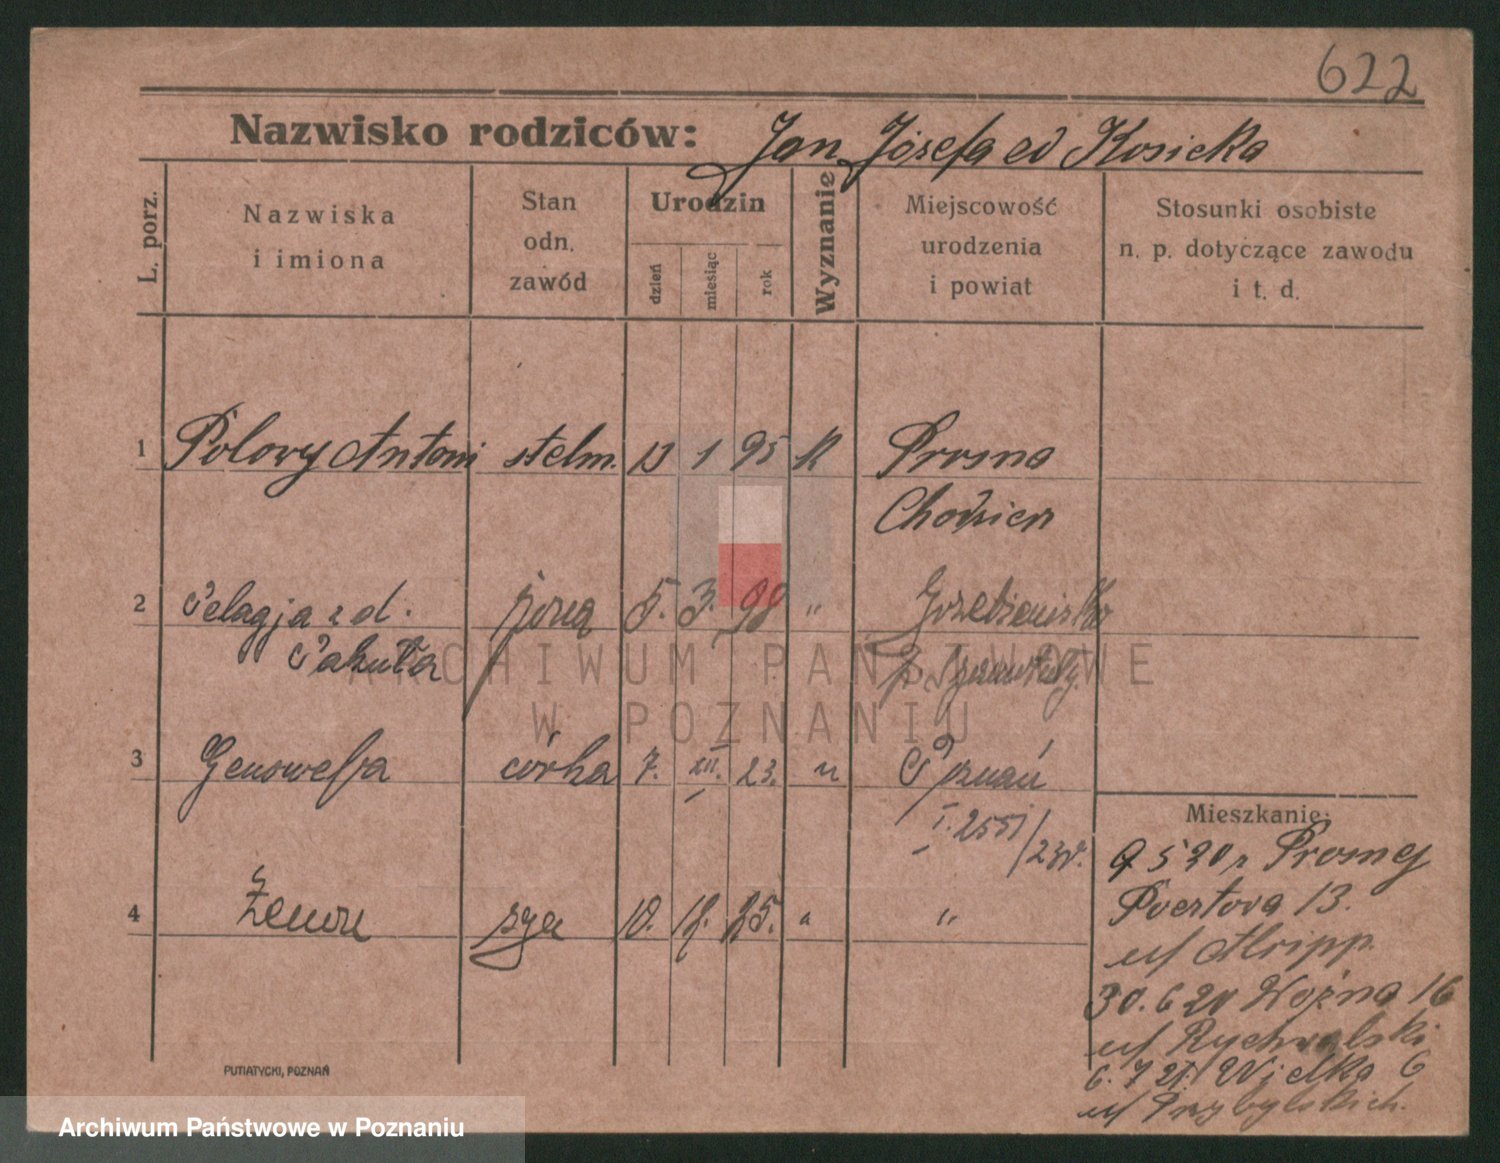 622
Nazwisko rodziców: Jan Józefa Kosicka
L. porz.
Nazwiska i imiona
Stan odn. zawód
Urodzin
dzień miesiąc rok
Wyznanie
Miejscowość urodzenia i powiat
Stosunki osobiste n. p. dotyczące zawodu i t. d.
1 Polowy Antoni stelm. 13 1 95 K Prosna
Chodzież
2 Pelagja z d. żona 5. 3. 98 "
Pakuła
3 Genowefa córka 7. XII. 23. " Poznań
I. 2551/23
4 Zenon syn 10. 12. 25. " "
Mieszkanie:
520 z Prosnej
13.
30.6 20 Woźna 16
u/ Rychwalski
6. 7 21. Wielka 6
u/ Przybylskich.
PUTIATYCKI, POZNAŃ
ARCHIWUM PAŃSTWOWE
W POZNANIU
Archiwum Państwowe w Poznaniu